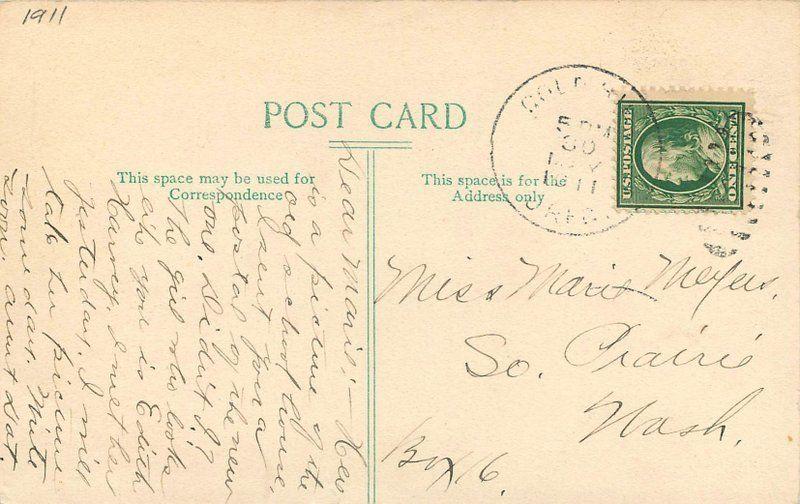 1911
POST CARD
This space may be used for
Correspondence
This space is for the
Address only
5 PM
30
1911
OREG.
U.S. POSTAGE
ONE CENT
Dear Marie:— Here
is a picture of the
old school house.
I sent you a
postal of the new
one. Didn't I?
The girl who looks
at you is Edith
Harvey. I met her
yesterday. I will
take her picture
some day. Write
soon, aunt Hat.
Miss Marie Meyers,
So. Prairie
Wash.
Box 16.